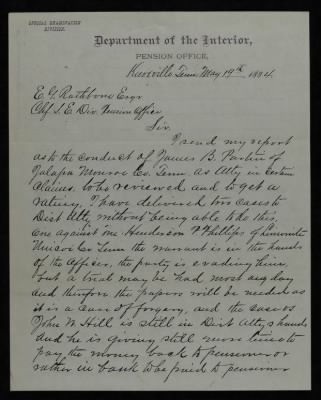 SPECIAL EXAMINATION
DIVISION.
Department of the Interior,
PENSION OFFICE,
Knoxville Tenn May 19th, 1884.
E. G. Rathbone Esqr
Chf S. E. Div. Pension Office
Sir
I send my report
as to the conduct of James B. Parkin of
Jalapa Monroe Co. Tenn. as Atty in certain
Claims. to be reviewed and to get a
rating, I have delivered two cases to
Dist Atty without being able to do this,
one against one Henderson P Phillips of
Monroe Co Tenn the warrant is in the hands
of the Officer, the party is evading him,
but a trial may be had most any day
and therefore the papers will be needed as
it is a case of forgery, and the case vs
John W Hill is still in Dist Attys hands
and he is giving still more time to
pay the money back to pensioner or
rather in bank to be paid to pensioner